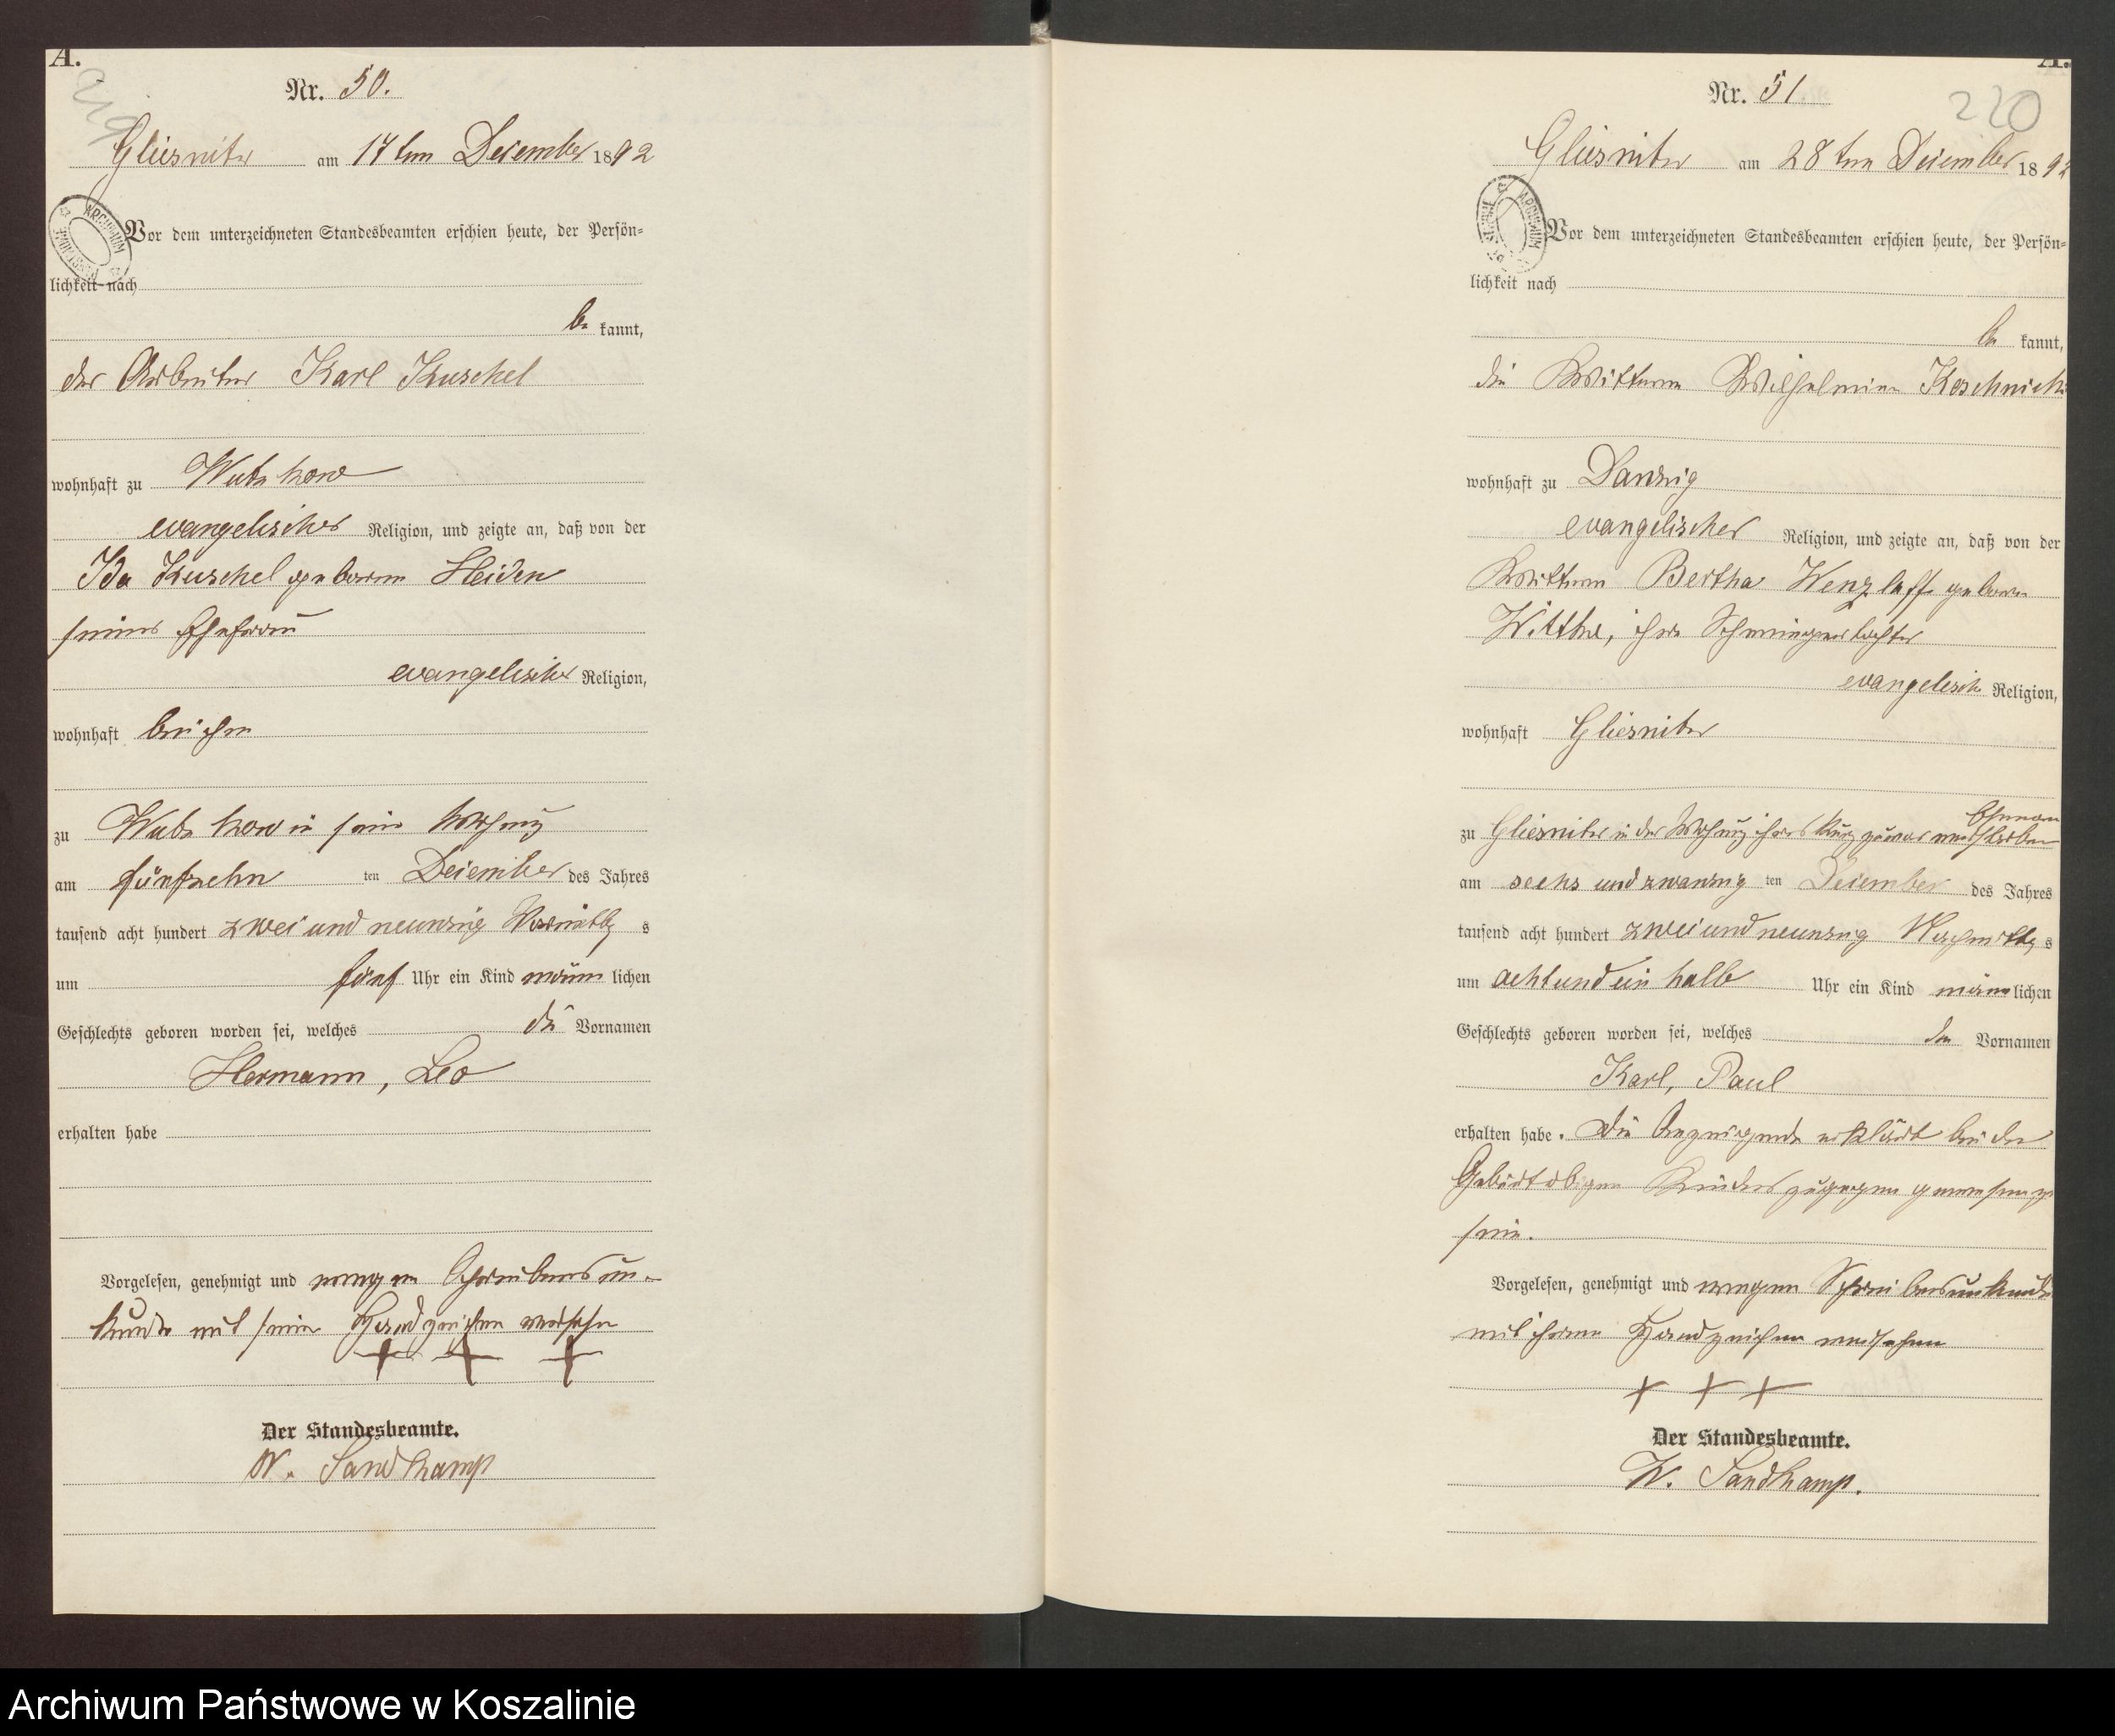 A.
Nr. 50.
Gliesnitz am 17ten Dezember 1892
Vor dem unterzeichneten Standesbeamten erschien heute, der Persön=
lichkeit nach
be kannt,
der Arbeiter Karl Kuschel
wohnhaft zu Wutzkow
evangelischer Religion, und zeigte an, daß von der
Ida Kuschel geborene Heiden
seiner Ehefrau
evangelischer Religion,
wohnhaft bei ihm
zu Wutzkow in seiner Wohnung
am fünfzehn ten Dezember des Jahres
tausend acht hundert zwei und neunzig Vormittag s
um fünf Uhr ein Kind männ lichen
Geschlechts geboren worden sei, welches die Vornamen
Hermann, Leo
erhalten habe
Vorgelesen, genehmigt und wegen Schreibensun-
kunde mit seinem Handzeichen versehen
+ + +
Der Standesbeamte.
W. Sandkamp
A.
220
Nr. 51
Gliesnitz am 28ten Dezember 1892
Vor dem unterzeichneten Standesbeamten erschien heute, der Persön=
lichkeit nach
be kannt,
die Wittwe Wilhelmine
wohnhaft zu Danzig
evangelischer Religion, und zeigte an, daß von der
Wittwe Bertha Wenzlaff geborene
Witthe, ihre Schwiegertochter
evangelisch Religion,
wohnhaft Gliesnitz
zu Gliesnitz in der Wohnung ihres kurz zuvor verstorbenen
Ehemann
am sechs und zwanzig ten Dezember des Jahres
tausend acht hundert zwei und neunzig Nachmittag s
um acht und ein halb Uhr ein Kind männ lichen
Geschlechts geboren worden sei, welches den Vornamen
Karl, Paul
erhalten habe. Die Anzeigende erklärt bei der
Geburt obigen Kindes zugegen gewesen zu
sein.
Vorgelesen, genehmigt und wegen Schreibensunkunde
mit ihrem Handzeichen versehen
+ + +
Der Standesbeamte.
W. Sandkamp.
Archiwum Państwowe w Koszalinie